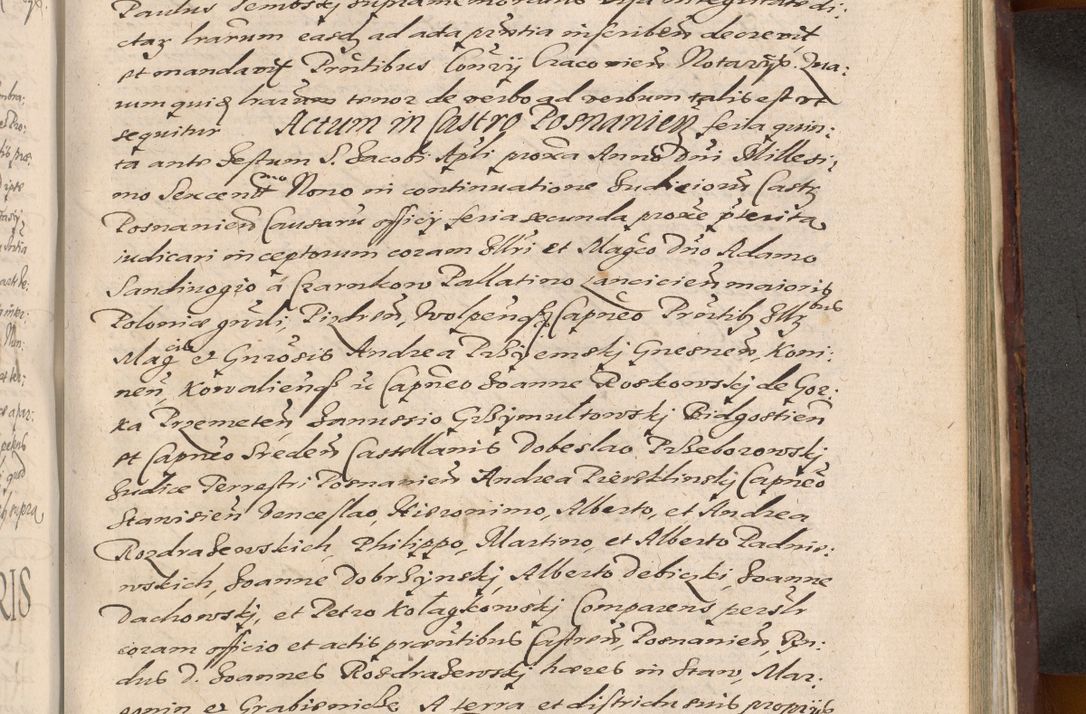 Paulus Sembskj supramemoratus
ctaꝝ lrarum easdꝫ ad acta pñtia inscribeñ decrevit
et mandavit Pñtibus Coñvij Cracovien̄ Notarijs. Qua:
rumquidꝫ lrarum tenor de verbo ad verbum talis est ut
sequitur Actum in Castro Posnanien̄ feria quin:
ta ante Festum S. Jacobi Apli proxa Anno Dñi Millesi:
mo Sexcentmo Nono in continuatione Judiciorū Castꝝ
Posnanien̄ Causarū officij feria secunda proxe pterita
iudicari inceptorum coram Illri et Magco Dño Adamo
Sandivogio á Czarnkow Pallatino Lancicien̄ maioris
Poloniæ gñrali, Pizdren̄, Wolpens Capneo Pñtibꝫ Illꝝ
Magcis et Gnrosis Andrea Przyemskj Gnesnen̄, Koni:
nen̄, Kowalien Capneo Joanne Roskowskj de Gor:
ka Przemeten̄ Janussio Grzymułtowskj Bidgostien̄
et Capneo Sreden̄ Castellanis Dobeslao Przeborowskj
Judice Terrestri Posnanien̄ Andrea Pierzklinskj Capneo
Stanisien̄ Venceslao, Hieronimo, Alberto, et Andrea
Rozdrazewskich, Philippo, Martino, et Alberto Padnie:
wskich, Joanne Dobrzynskj, Alberto Debiczki, Joanne
Dachowskj, et Petro Kołaczkowskj Comparens persLr
coram officio et actis præntibus Castren̄, Posnanien̄, Gn:
dus D. Joannes Rozdrazewskj hæres in Staw, Mar:
et Grabienicze A terra et districtu suis proprijs